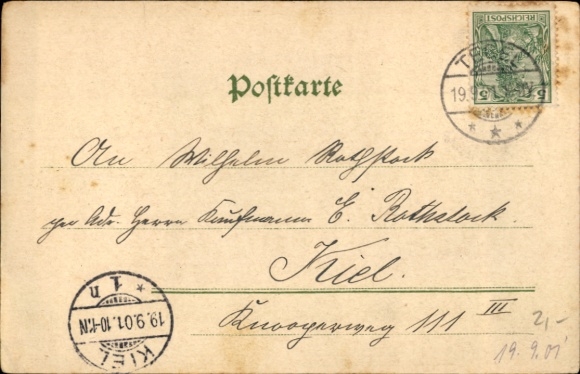 REICHSPOST
5 5
TEGEL
19.9.01
Postkarte
An Wilhelm Rothstock
per Adr. Herrn Kaufmann E. Rothstock.
Kiel.
Knooperweg 111 III
KIEL
1 n
19.9.01.10-11N
2,-
19.9.01